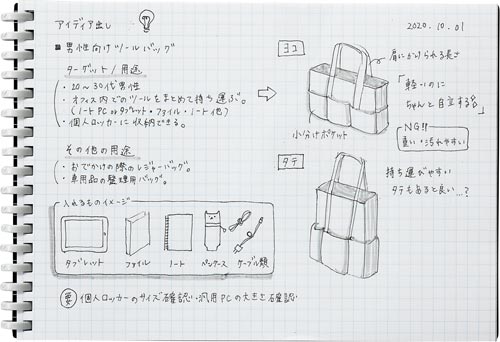 アイディア出し
2020.10.01
■ 男性向けツールバッグ
ターゲット/用途
・20〜30代男性
・オフィス内でのツールをまとめて持ち運ぶ。
(ノートPC or タブレット・ファイル・ノート他)
・個人ロッカーに収納できる。
その他の用途
・おでかけの際のレジャーバッグ。
・車用品の整理用バッグ。
入れるものイメージ
タブレット
ファイル
ノート
ペンケース
ケーブル類
要 個人ロッカーのサイズ確認・汎用PCの大きさ確認
ヨコ
肩にかけられる長さ
「軽いのに
ちゃんと自立する」
NG!!
重い・汚れやすい
小分けポケット
タテ
持ち運びやすい
タテもあると良い…?